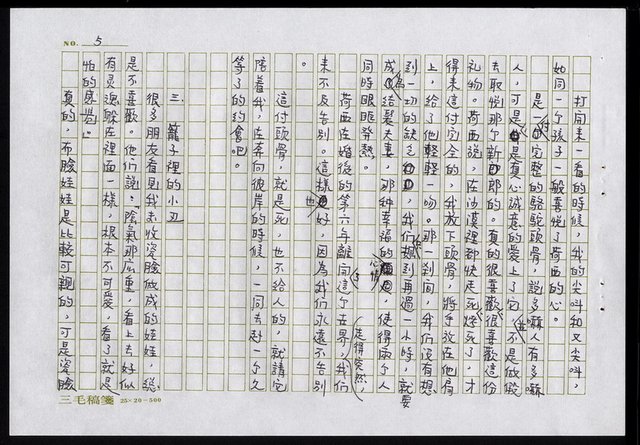 NO. 5
打開來一看的時候，我的尖叫又尖叫，
如同一個孩子一般喜悅了荷西的心。
是一付完整的駱駝頭骨，說多嚇人有多嚇
人，可是真心誠意的愛上了它，並不是做假
去取悅那個新郎的。真的很喜歡很喜歡這份
禮物。荷西說，在沙漠裡都快走死燒死了，才
得來這付完全的，我放下頭骨，將手放在他肩
上，給了他輕輕一吻。那一剎間，我們沒有想
到一切的缺乏，我們只想到再過一小時，就要
成為結髮夫妻，那種幸福的心情，使得兩個人
同時眼眶發熱。
荷西在婚後的第六年離開這個世界，我們
走得突然，
來不及告別。這樣也好，因為我們永遠不告別
。
這付頭骨，就是死，也不給人的，就請它
陪着我，在奔向彼岸的時候，一同去赴一個久
等了的約會吧。
三. 籠子裡的小丑
很多朋友看見我去收瓷臉做成的娃娃，總
是不喜歡。他們說：「陰氣那麼重，看上去好似
有灵魂躲在裡面一樣，根本不可愛，看了就是
怕的感覺。」
真的，布臉娃娃是比較可親的，可是瓷臉
三毛稿箋 25×20=500